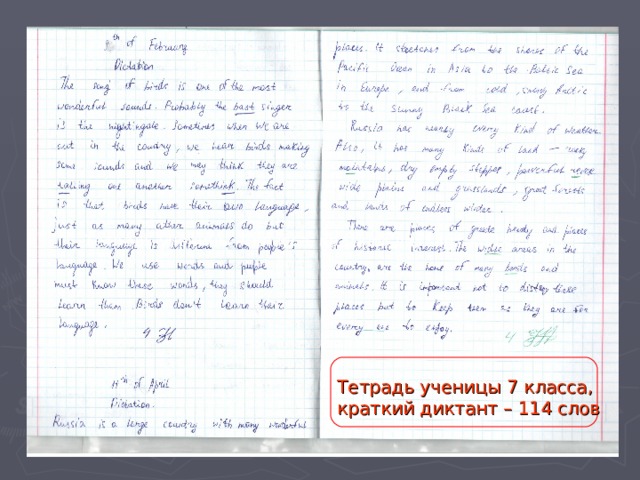 8th of February
Dictation
The song of birds is one of the most
wonderful sounds. Probably the best singer
is the nightingale. Sometimes when we are
out in the country, we hear birds making
some sounds and we may think they are
telling one another something. The fact
is that birds have their own language,
just as many other animals do but
their language is different from people's
language. We use words and people
must know these words, they should
learn them. Birds don't learn their
language.
4
11th of April
Dictation.
Russia is a large country with many wonderful
places. It stretches from the shores of the
Pacific Ocean in Asia to the Baltic Sea
in Europe, and from cold, snowy Arctic
to the sunny Black Sea coast.
Russia has nearly every kind of weather.
Also, it has many kinds of land — rocky
mountains, dry empty steppes, powerful rivers
wide plains and grasslands, great forests
and of endless winter.
There are places of great beauty and places
of historic interest. The wilder areas in the
country are the home of many birds and
animals. It is important not to destroy these
places but to keep them as they are for
every one to enjoy.
4
Тетрадь ученицы 7 класса,
краткий диктант – 114 слов